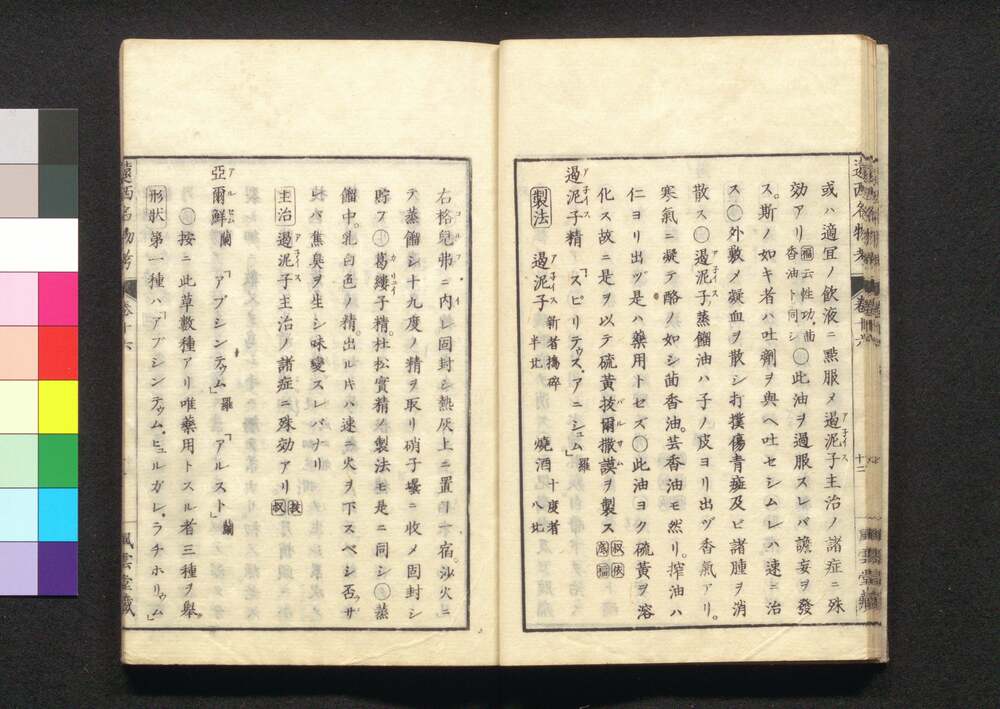 遠西名物考 卷十六
或ハ適冝ノ飲液ニ㸃服メ過泥子主治ノ諸症ニ殊
効アリ 福云性功茴香油ト同シ ○此油ヲ過服スレバ譫妄ヲ發
ス。斯ノ如キ者ハ吐劑ヲ與ヘ吐セシムレハ速ニ治
ス○外敷メ凝血ヲ散シ打撲傷青斑及ビ諸腫ヲ消
散ス○過泥子蒸餾油ハ子ノ皮ヨリ出ヅ香氣アリ。
寒氣ニ凝テ酪ノ如シ茴香油。芸香油モ然リ。搾油ハ
仁ヨリ出ヅ是ハ藥用トセズ○此油ヨク硫黄ヲ溶
化ス故ニ是ヲ以テ硫黄抜爾撒謨ヲ製ス
過泥子精 「スピリテゥス、アニシュム」羅
製法 過泥子 新者搗碎半比 燒酒 十度者八比
右格兒弗ニ内レ固封シ熱灰上ニ置
テ蒸餾シ十九度ノ精ヲ取リ硝子壜ニ收メ固封シ
貯フ 葛縷子精。杜松實精ノ製法モ是ニ同シ○蒸
餾中。乳白色ノ精。出ル片ハ速ニ火ヲ下スベシ否ザ
レバ焦臭ヲ生シ味變スレバナリ
主治 過泥子主治ノ諸症ニ殊効アリ 扶 叔
亞爾鮮 「アブシンテゥム」羅 「アルスト」蘭
○按ニ此草數種アリ唯藥用トスル者三種ヲ舉。
形状第一種ハ「アブシンテゥム、ヒュルガレ、ラチホリゥム」
遠西名物考 卷十六 風雲堂藏